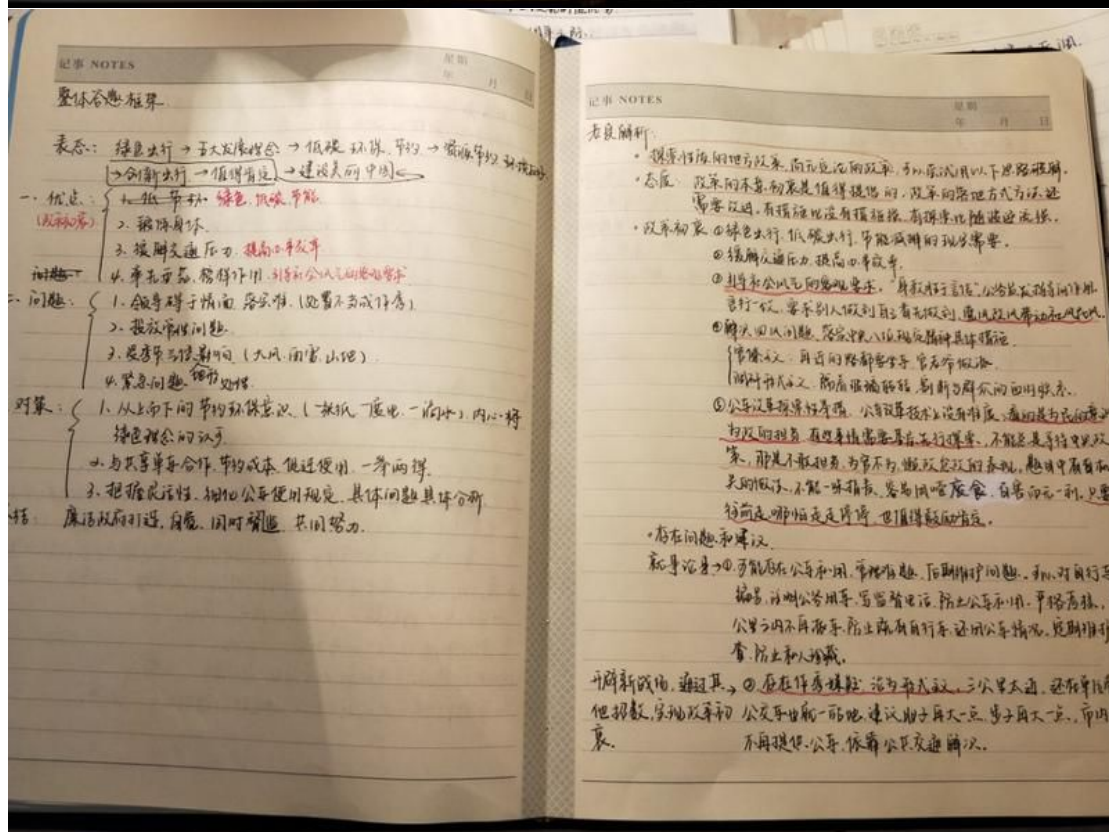 记事 NOTES
星期
年 月 日
整体答题框架
表态：绿色出行→五大发展理念→低碳 环保 节约→资源节约 环境友好
→创新出行→值得肯定→建设美丽中国
一、优点：
(改革初衷)
1. 绿色, 低碳, 节能
2. 锻炼身体.
3. 缓解交通压力. 提高办事效率
4. 率先垂范, 榜样作用. 引导社会风气的客观要求
问题：
1. 领导碍于情面 落实难. (处置不当或作秀)
2. 投放 问题.
3. 受季节 影响 (大风. 雨雪. 山地)
4. 紧急问题 处理.
对策：
1. 从上而下的节约环保意识 (一张纸 一度电 一滴水). 内心将
绿色理念的认可
2. 与共享单车合作. 节约成本 促进使用. 一举两得.
3. 把握灵活性. 细化公车使用规定. 具体问题具体分析
结： 廉洁政府引淫, 自觉, 同时 共同努力.
记事 NOTES
星期
年 月 日
老良解析：
· 探索性质的地方改革, 尚无定论的改革, 可以尝试用以下思路破解.
· 态度： 改革的本意, 初衷是值得提倡的, 改革的落地方式方法, 还
需要改进, 有措施比没有措施强, 有探索比随波逐流强.
· 改革初衷 ①绿色出行, 低碳出行, 节能减排的现实需要.
②缓解交通压力, 提高办事效率.
③引导社会风气的客观要求. "身教胜于言传", 公务员
言行一致, 要求别人做到自己首先做到, 带动社风民风.
④解决四风问题, 落实中央八项规定精神具体措施.
官僚主义：再近的路都要坐车, 官老爷做派.
形式主义, 隔着玻璃 , 割断与群众的 联系.
⑤公车改革探索性举措, 公车改革技术上没有难度,
为政的担当, 有些事情需要基层先行探索, 不能总是等待中央政
策, 那是不敢担当, 为官不为, 懒政怠政的表现, 题目中有有
关的做法, 不能一味指责, 容易因噎废食, 百害而无一利, 只要
往前走, 哪怕走走停停, 也值得鼓励肯定.
· 存在问题和建议
就事论事→①可能存在公车私用, 管理难题, 后期维护问题. 可以对自行车
编号, 注明公务用车, 写监督电话, 防止公车私用. 严格落实,
公里之内不再派车, 防止 自行车, 还用公车情况, 定期维护
查, 防止私人珍藏.
开辟新战场, 通过其→②存在作秀嫌疑, 沦为形式主义, 三公里太近, 还在单位
他招数, 实现改革初 公交车 , 建议胆子再大一点, 步子再大一点, 市内
衷. 不再提供公车, 依靠公共交通解决.